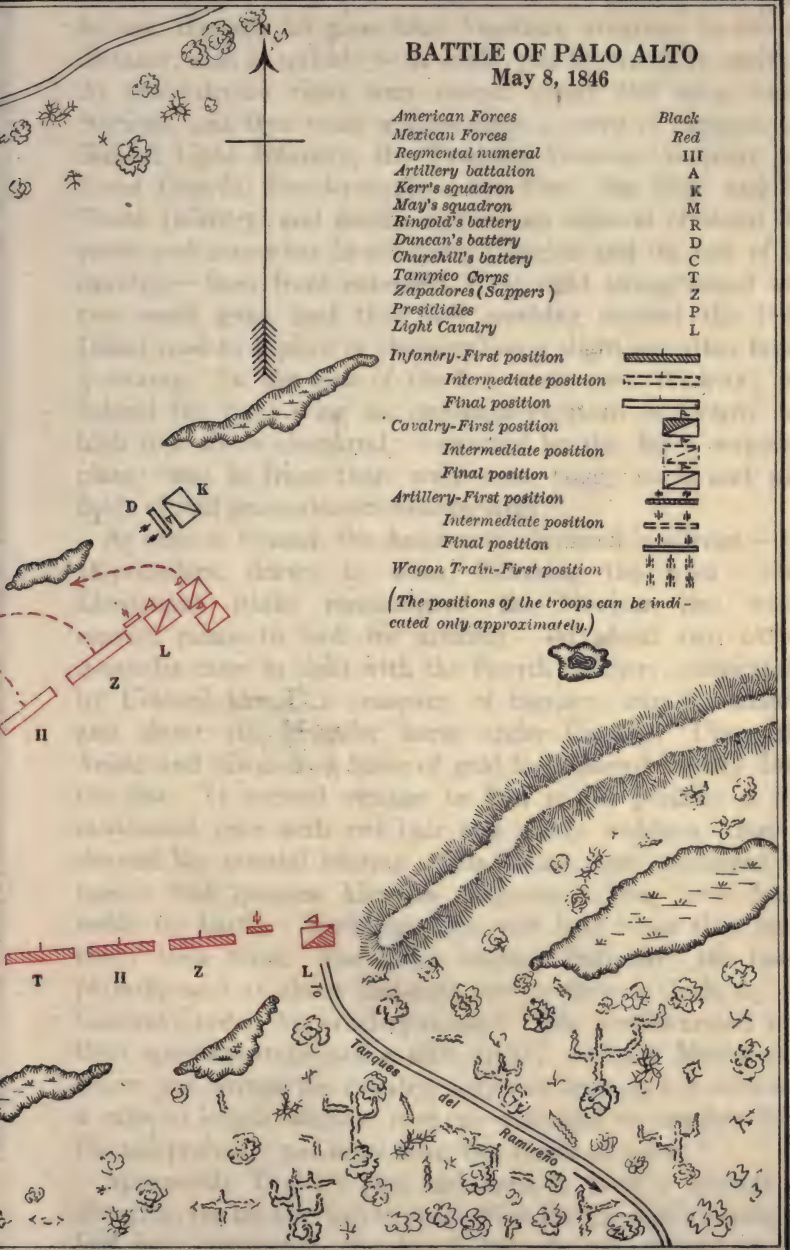 N
BATTLE OF PALO ALTO
May 8, 1846
American Forces Black
Mexican Forces Red
Regmental numeral III
Artillery battalion A
Kerr's squadron K
May's squadron M
Ringold's battery R
Duncan's battery D
Churchill's battery C
Tampico Corps T
Zapadores (Sappers) Z
Presidiales P
Light Cavalry L
Infantry-First position
Intermediate position
Final position
Cavalry-First position
Intermediate position
Final position
Artillery-First position
Intermediate position
Final position
Wagon Train-First position
(The positions of the troops can be indi-
cated only approximately.)
D K
L
Z
II
T II Z L
To Tanques del Ramireño